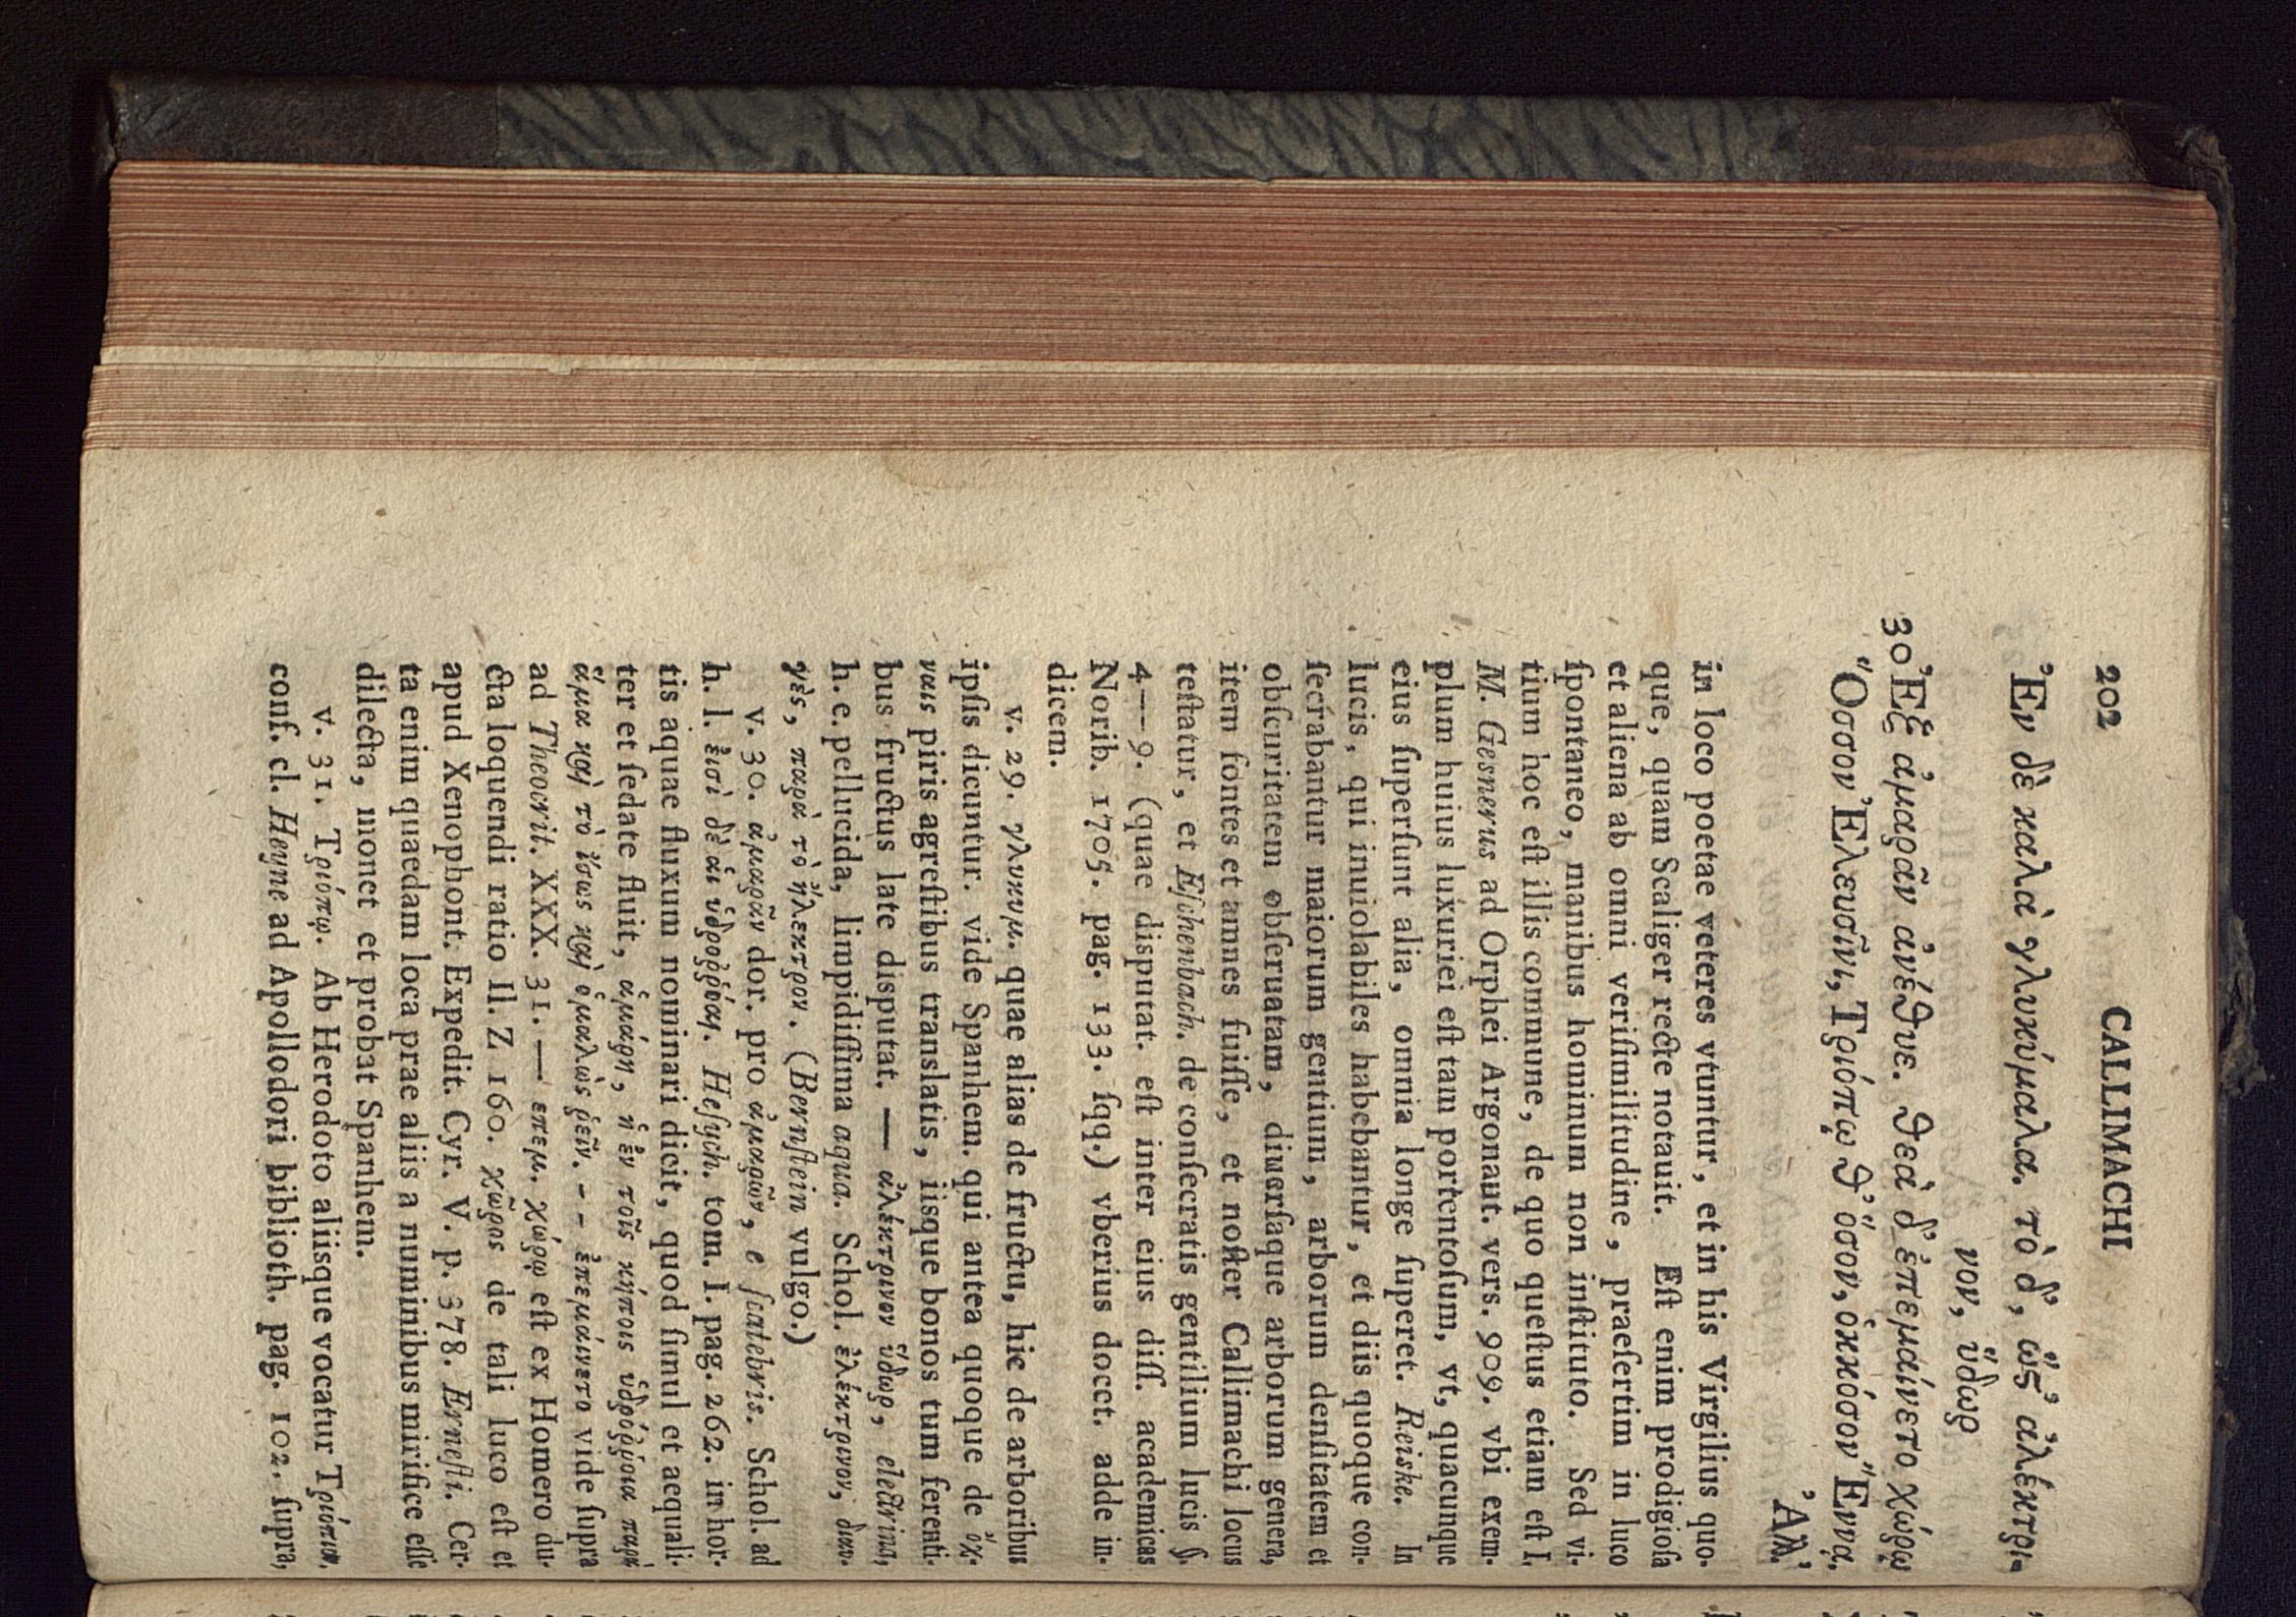 202 CALLIMACHI
Ἐν δὲ καλὰ γλυκύμαλα. τὸ δ', ὥς' ἀλέκτρι-
νον, ὕδωρ
30 Ἐξ ἀμαρᾶν ἀνέθυε. θεὰ δ' ἐπεμαίνετο χώρῳ
Ὅσσον Ἐλευσῖνι, Τριόπῳ θ' ὅσον, ὁκκόσον Ἔννᾳ.
Ἀλλ'
in loco poetae veteres vtuntur, et in his Virgilius quo-
que, quam Scaliger recte notauit. Eſt enim prodigioſa
et aliena ab omni veriſimilitudine, praeſertim in luco
ſpontaneo, manibus hominum non inſtituto. Sed vi-
tium hoc eſt illis commune, de quo queſtus etiam eſt I.
M. Gesnerus ad Orphei Argonaut. vers. 909. vbi exem-
plum huius luxuriei eſt tam portentoſum, vt, quacunque
eius ſuperſunt alia, omnia longe ſuperet. Reiske. In
lucis, qui inuiolabiles habebantur, et diis quoque con-
ſecrabantur maiorum gentium, arborum denſitatem et
obſcuritatem obſeruatam, diuerſaque arborum genera,
item fontes et amnes fuiſſe, et noſter Callimachi locus
teſtatur, et Eſchenbach. de conſecratis gentilium lucis §.
4--9. (quae disputat. eſt inter eius diſſ. academicas
Norib. 1705. pag. 133. ſqq.) vberius docet. adde in-
dicem.
v. 29. γλυκυμ. quae alias de fructu, hic de arboribus
ipſis dicuntur. vide Spanhem. qui antea quoque de ὄχ-
ναις piris agreſtibus translatis, iisque bonos tum ferenti-
bus fructus late disputat. — ἀλέκτρινον ὕδωρ, electrina,
h. e. pellucida, limpidiſſima aqua. Schol. ἐλέκτρινον, διαυ-
γὲς, παρὰ τὸ ἤλεκτρον. (Bernſtein vulgo.)
v. 30. ἀμαρᾶν dor. pro ἀμαρῶν, e ſcatebris. Schol. ad
h. l. ἐισὶ δὲ ἁι ὑδροῤῥόαι. Heſych. tom. I. pag. 262. in hor-
tis aquae fluxum nominari dicit, quod ſimul et aequali-
ter et ſedate fluit, ἁμάρη, ἡ ἐν τοῖς κήποις ὑδρόῤῥοια παρὰ
ἅμα καὶ τὸ ἴσως καὶ ὁμαλῶς ῥεῖν. -- ἐπεμάινετο vide ſupra
ad Theocrit. XXX. 31. — επεμ. χώρῳ eſt ex Homero du-
cta loquendi ratio Il. Z 160. χῶρος de tali luco eſt et
apud Xenophont. Expedit. Cyr. V. p. 378. Erneſti. Cer-
ta enim quaedam loca prae aliis a numinibus mirifice eſſe
dilecta, monet et probat Spanhem.
v. 31. Τριόπῳ. Ab Herodoto aliisque vocatur Τριόπιον.
conf. cl. Heyne ad Apollodori biblioth. pag. 102. ſupra,